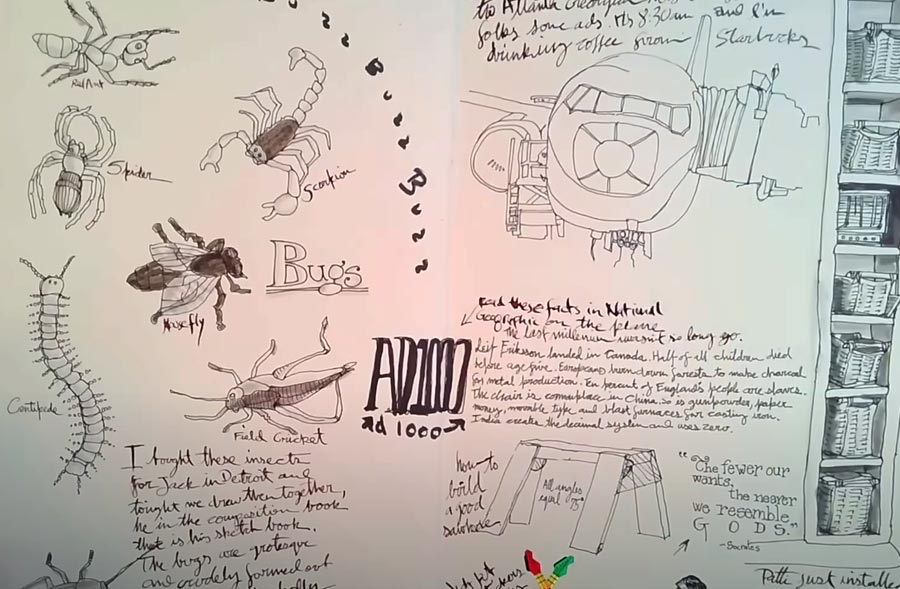 Red Ant
Spider
Scorpion
Housefly
Bugs
Centipede
Field Cricket
I bought these insects
for Jack in Detroit and
tought we drew them together,
he in the composition book
that is his sketch book.
The bugs are grotesque
and crudely formed out
to Atlanta Georgia
folks some ads. It's 8:30am and I'm
drinking coffee from Starbucks
Read these facts in National
Geographic on the plane
The last millenium wasn't so long ago.
Leif Eriksson landed in Canada. Half of all children died
before age five. Europeans burn down forests to make charcoal
for metal production. Ten percent of England's people are slaves.
The chair is commonplace in China. So is gunpowder, paper
money, movable type and blast furnaces for casting iron.
India creates the decimal system and uses zero.
AD1000
ad 1000
how to
build
a good
sawhorse
All angles
equal 75°
"The fewer our
wants,
the nearer
we resemble
GODS."
-Socrates
just installed